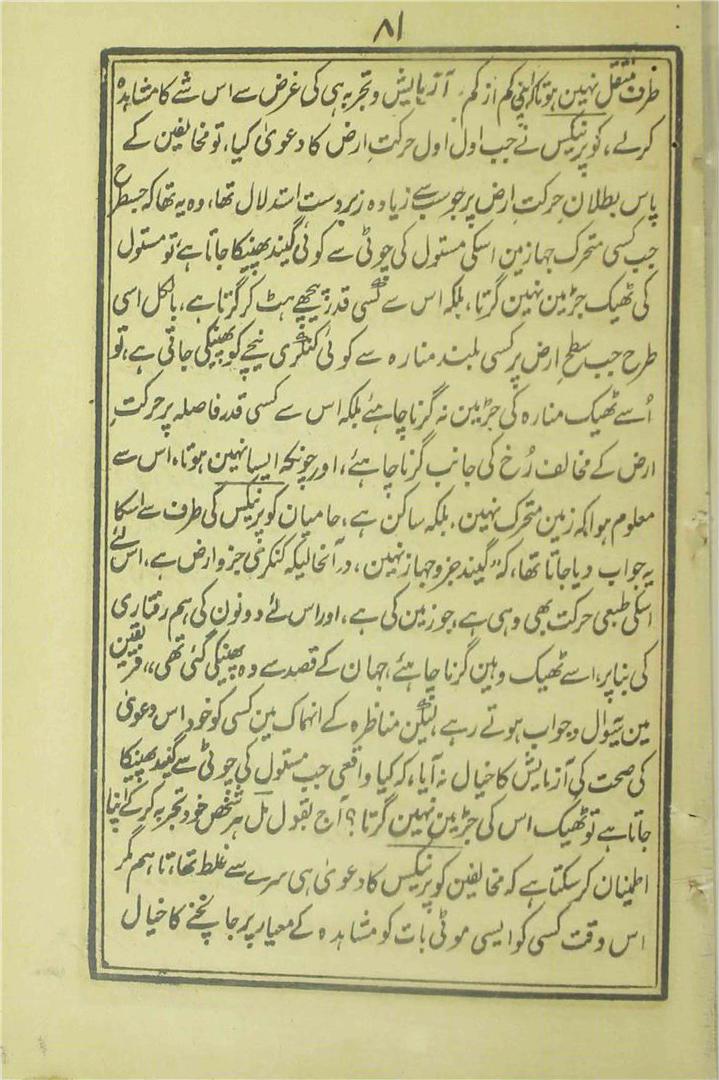 ۸۱
طرف منتقل نہین ہوتا کہ اپنی کم از کم آزمایش و تجربہ ہی کی غرض سے اس شے کا مشاہدہ
کرلے، کوپرنیکس نے جب اول اول حرکتِ ارض کا دعویٰ کیا، تو مخالفین کے
پاس بطلان حرکتِ ارض پر جو سب سے زیادہ زبردست استدلال تھا، وہ یہ تھا کہ جسطرح
جب کسی متحرک جہاز مین اسکی مستول کی چوٹی سے کوئی گیند پھینکا جاتا ہے تو مستول
کی ٹھیک جڑ مین نہین گرتا، بلکہ اس سے کسی قدر پیچھے ہٹ کر گرتا ہے، بالکل اسی
طرح جب سطحِ ارض پر کسی بلند منارہ سے کوئی کنکری نیچے کو پھینکی جاتی ہے، تو
اُسے ٹھیک منارہ کی جڑ مین نہ گرنا چاہئے بلکہ اس سے کسی قدر فاصلہ پر حرکتِ
ارض کے مخالف رُخ کی جانب گرنا چاہئے، اور چونکہ ایسا نہین ہوتا، اس سے
معلوم ہوا کہ زمین متحرک نہین، بلکہ ساکن ہے، حامیان کوپرنیکس کی طرف سے اسکا
یہ جواب دیا جاتا تھا، کہ "گیند جزو جہاز نہین، درآنحالیکہ کنکری جزو ارض ہے، اس لئے
اسکی طبعی حرکت بھی وہی ہے، جو زمین کی ہے، اور اس لئے دونون کی ہم رفتاری
کی بنا پر، اسے ٹھیک وہین گرنا چاہئے، جہان کے قصد سے وہ پھینکی گئی تھی"، فریقین
مین سوال و جواب ہوتے رہے، لیکن مناظرہ کے انہماک مین کسی کو خود اس دعویٰ
کی صحت کی آزمایش کا خیال نہ آیا، کہ کیا واقعی جب مستول کی چوٹی سے گیند پھینکا
جاتا ہے تو ٹھیک اس کی جڑ مین نہین گرتا؟ آج بقول مل ہر شخص خود تجربہ کر کے اپنا
اطمنان کر سکتا ہے کہ مخالفین کوپرنیکس کا دعویٰ ہی سرے سے غلط تھا، تاہم مگر
اس وقت کسی کو ایسی موٹی بات کو مشاہدہ کے معیار پر جانچنے کا خیال